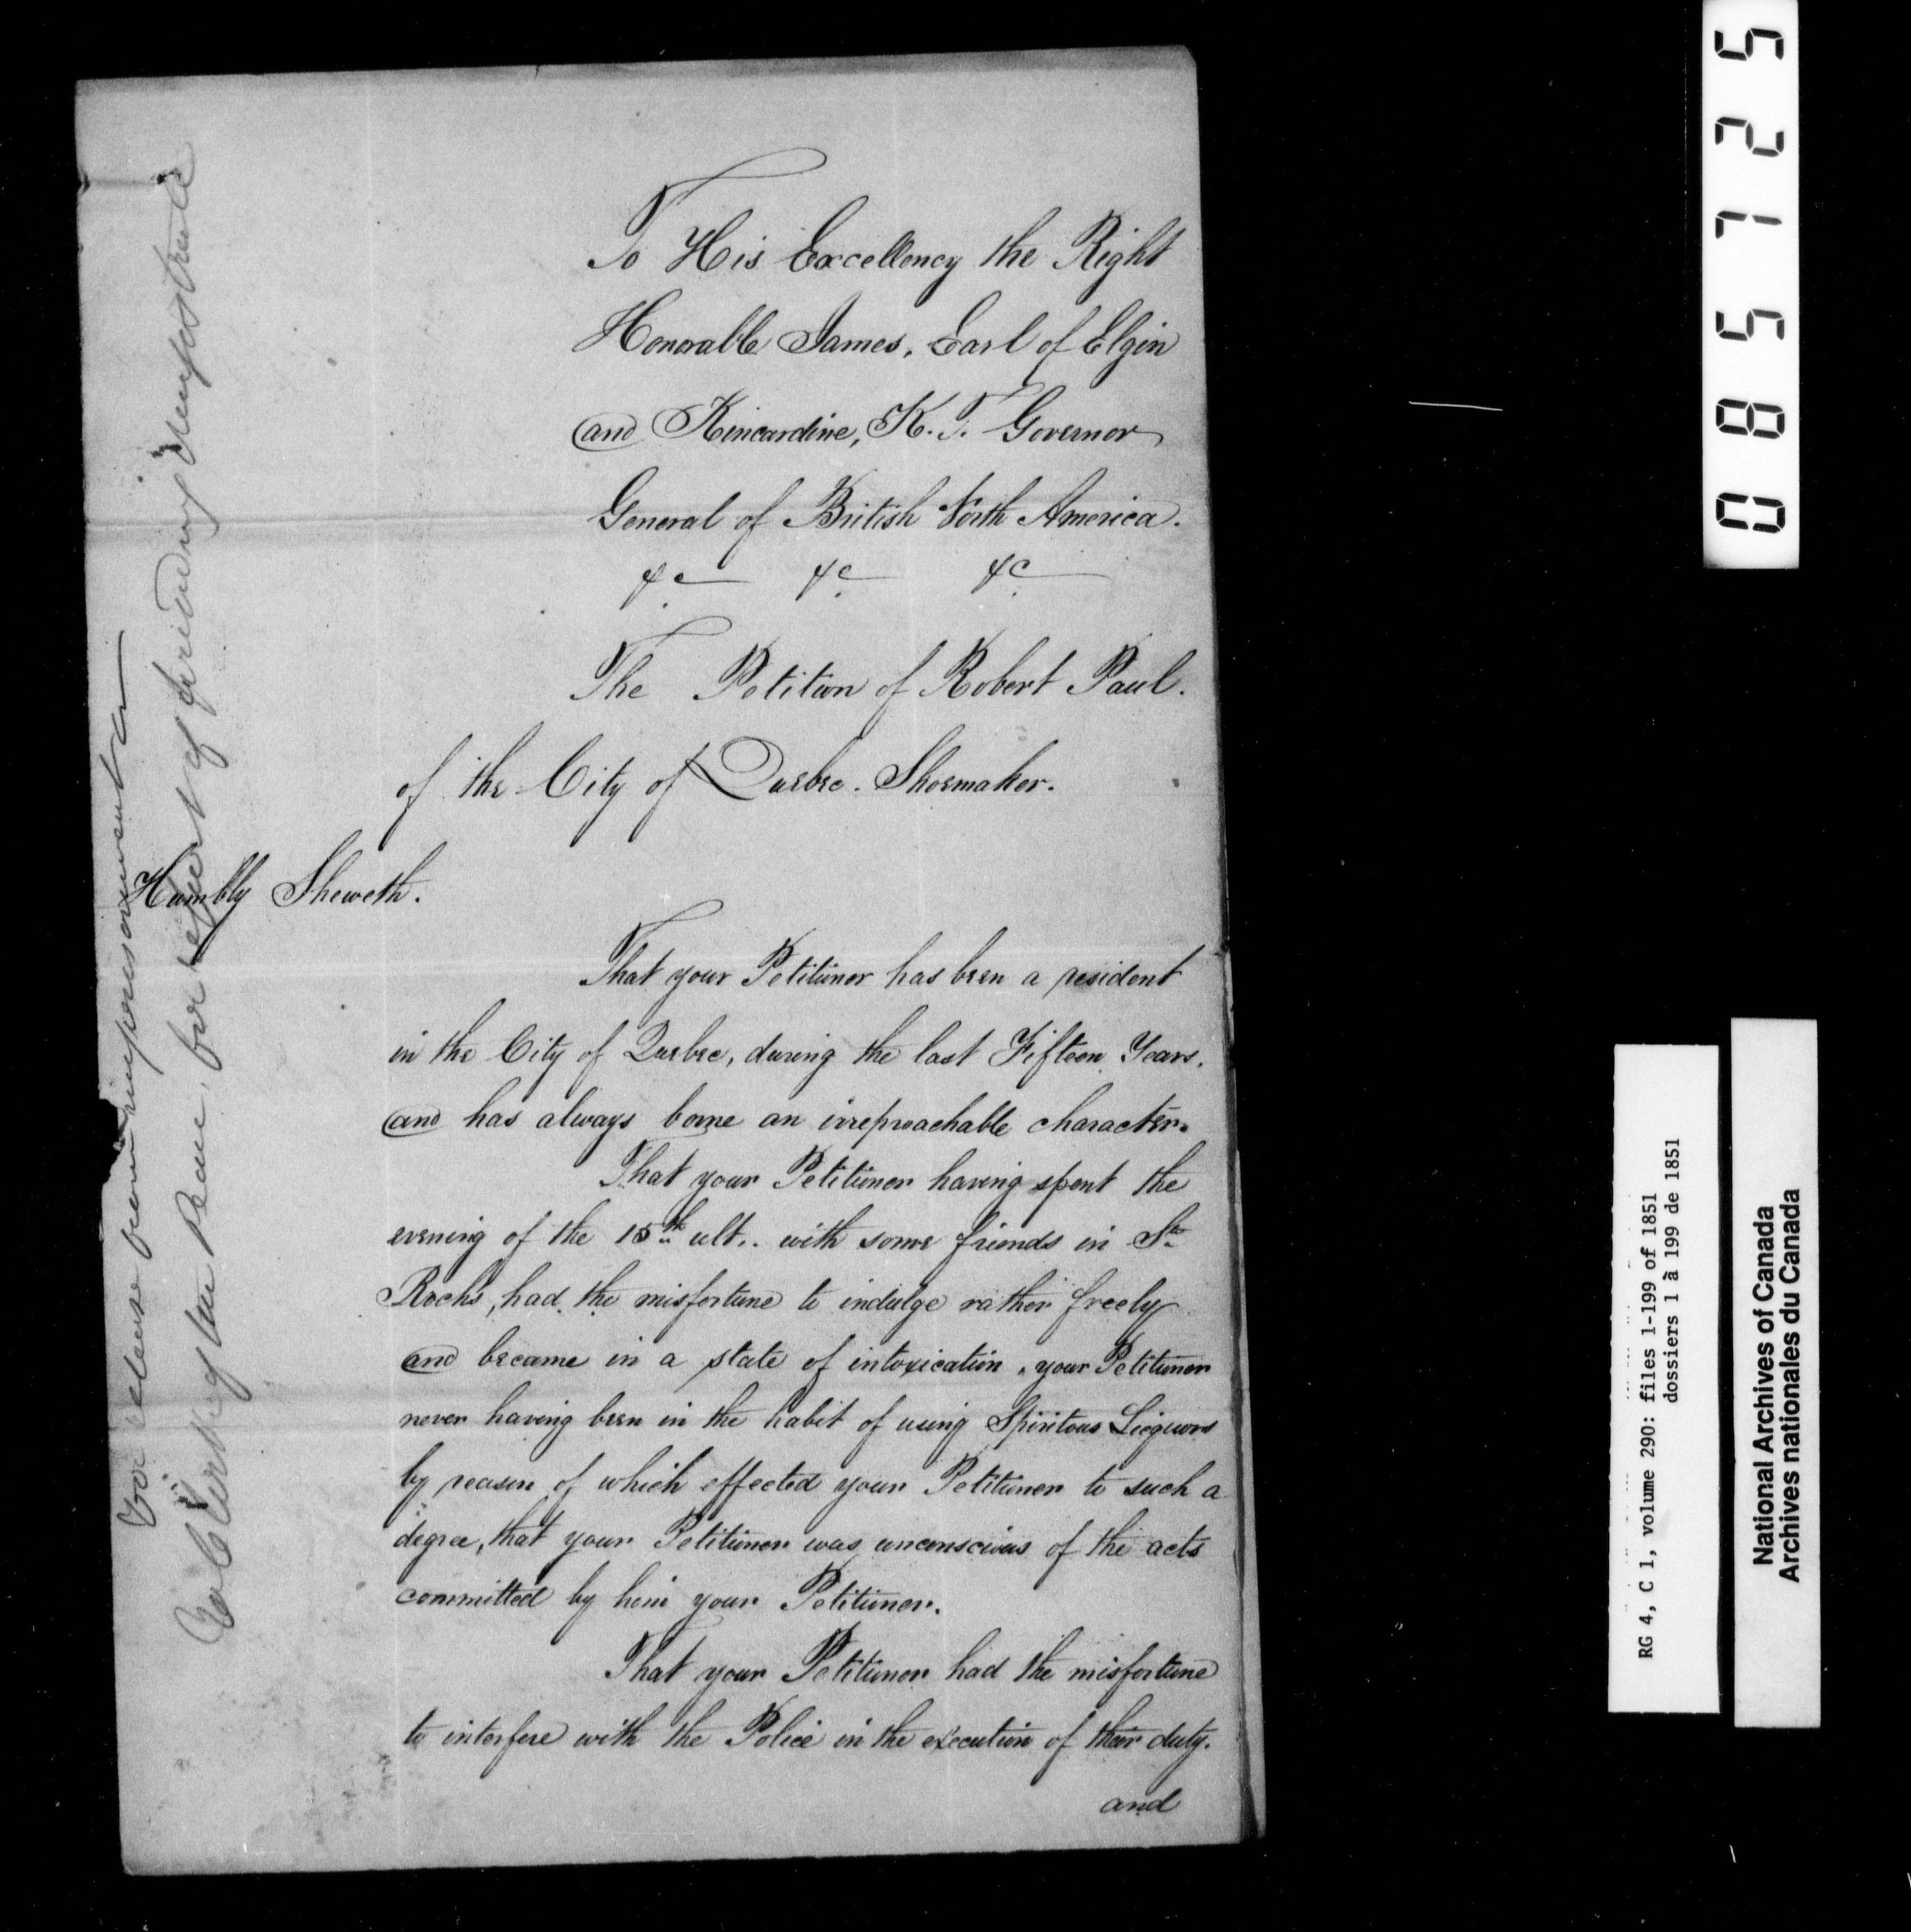 To His Excellency the Right
Honorable James, Earl of Elgin
and Kincardine, K. T. Governor
General of British North America.
&c &c &c
The Petition of Robert Paul.
of the City of Quebec. Shoemaker.
Humbly Sheweth.
That your Petitioner has been a resident
in the City of Quebec, during the last Fifteen Years.
and has always borne an irreproachable character.
That your Petitioner having spent the
evening of the 15th ult.. with some friends in St
Roch's, had the misfortune to indulge rather freely
and became in a state of intoxication, your Petitioner
never having been in the habit of using Spiritous Liequors
by reason of which effected your Petitioner to such a
degree, that your Petitioner was unconscious of the acts
committed by him your Petitioner.
That your Petitioner had the misfortune
to interfere with the Police in the execution of their duty.
and
For release from imprisonment
Clerk of the Peace, for report of
085725
RG 4, C 1, volume 290: files 1-199 of 1851
dossiers 1 à 199 de 1851
National Archives of Canada
Archives nationales du Canada